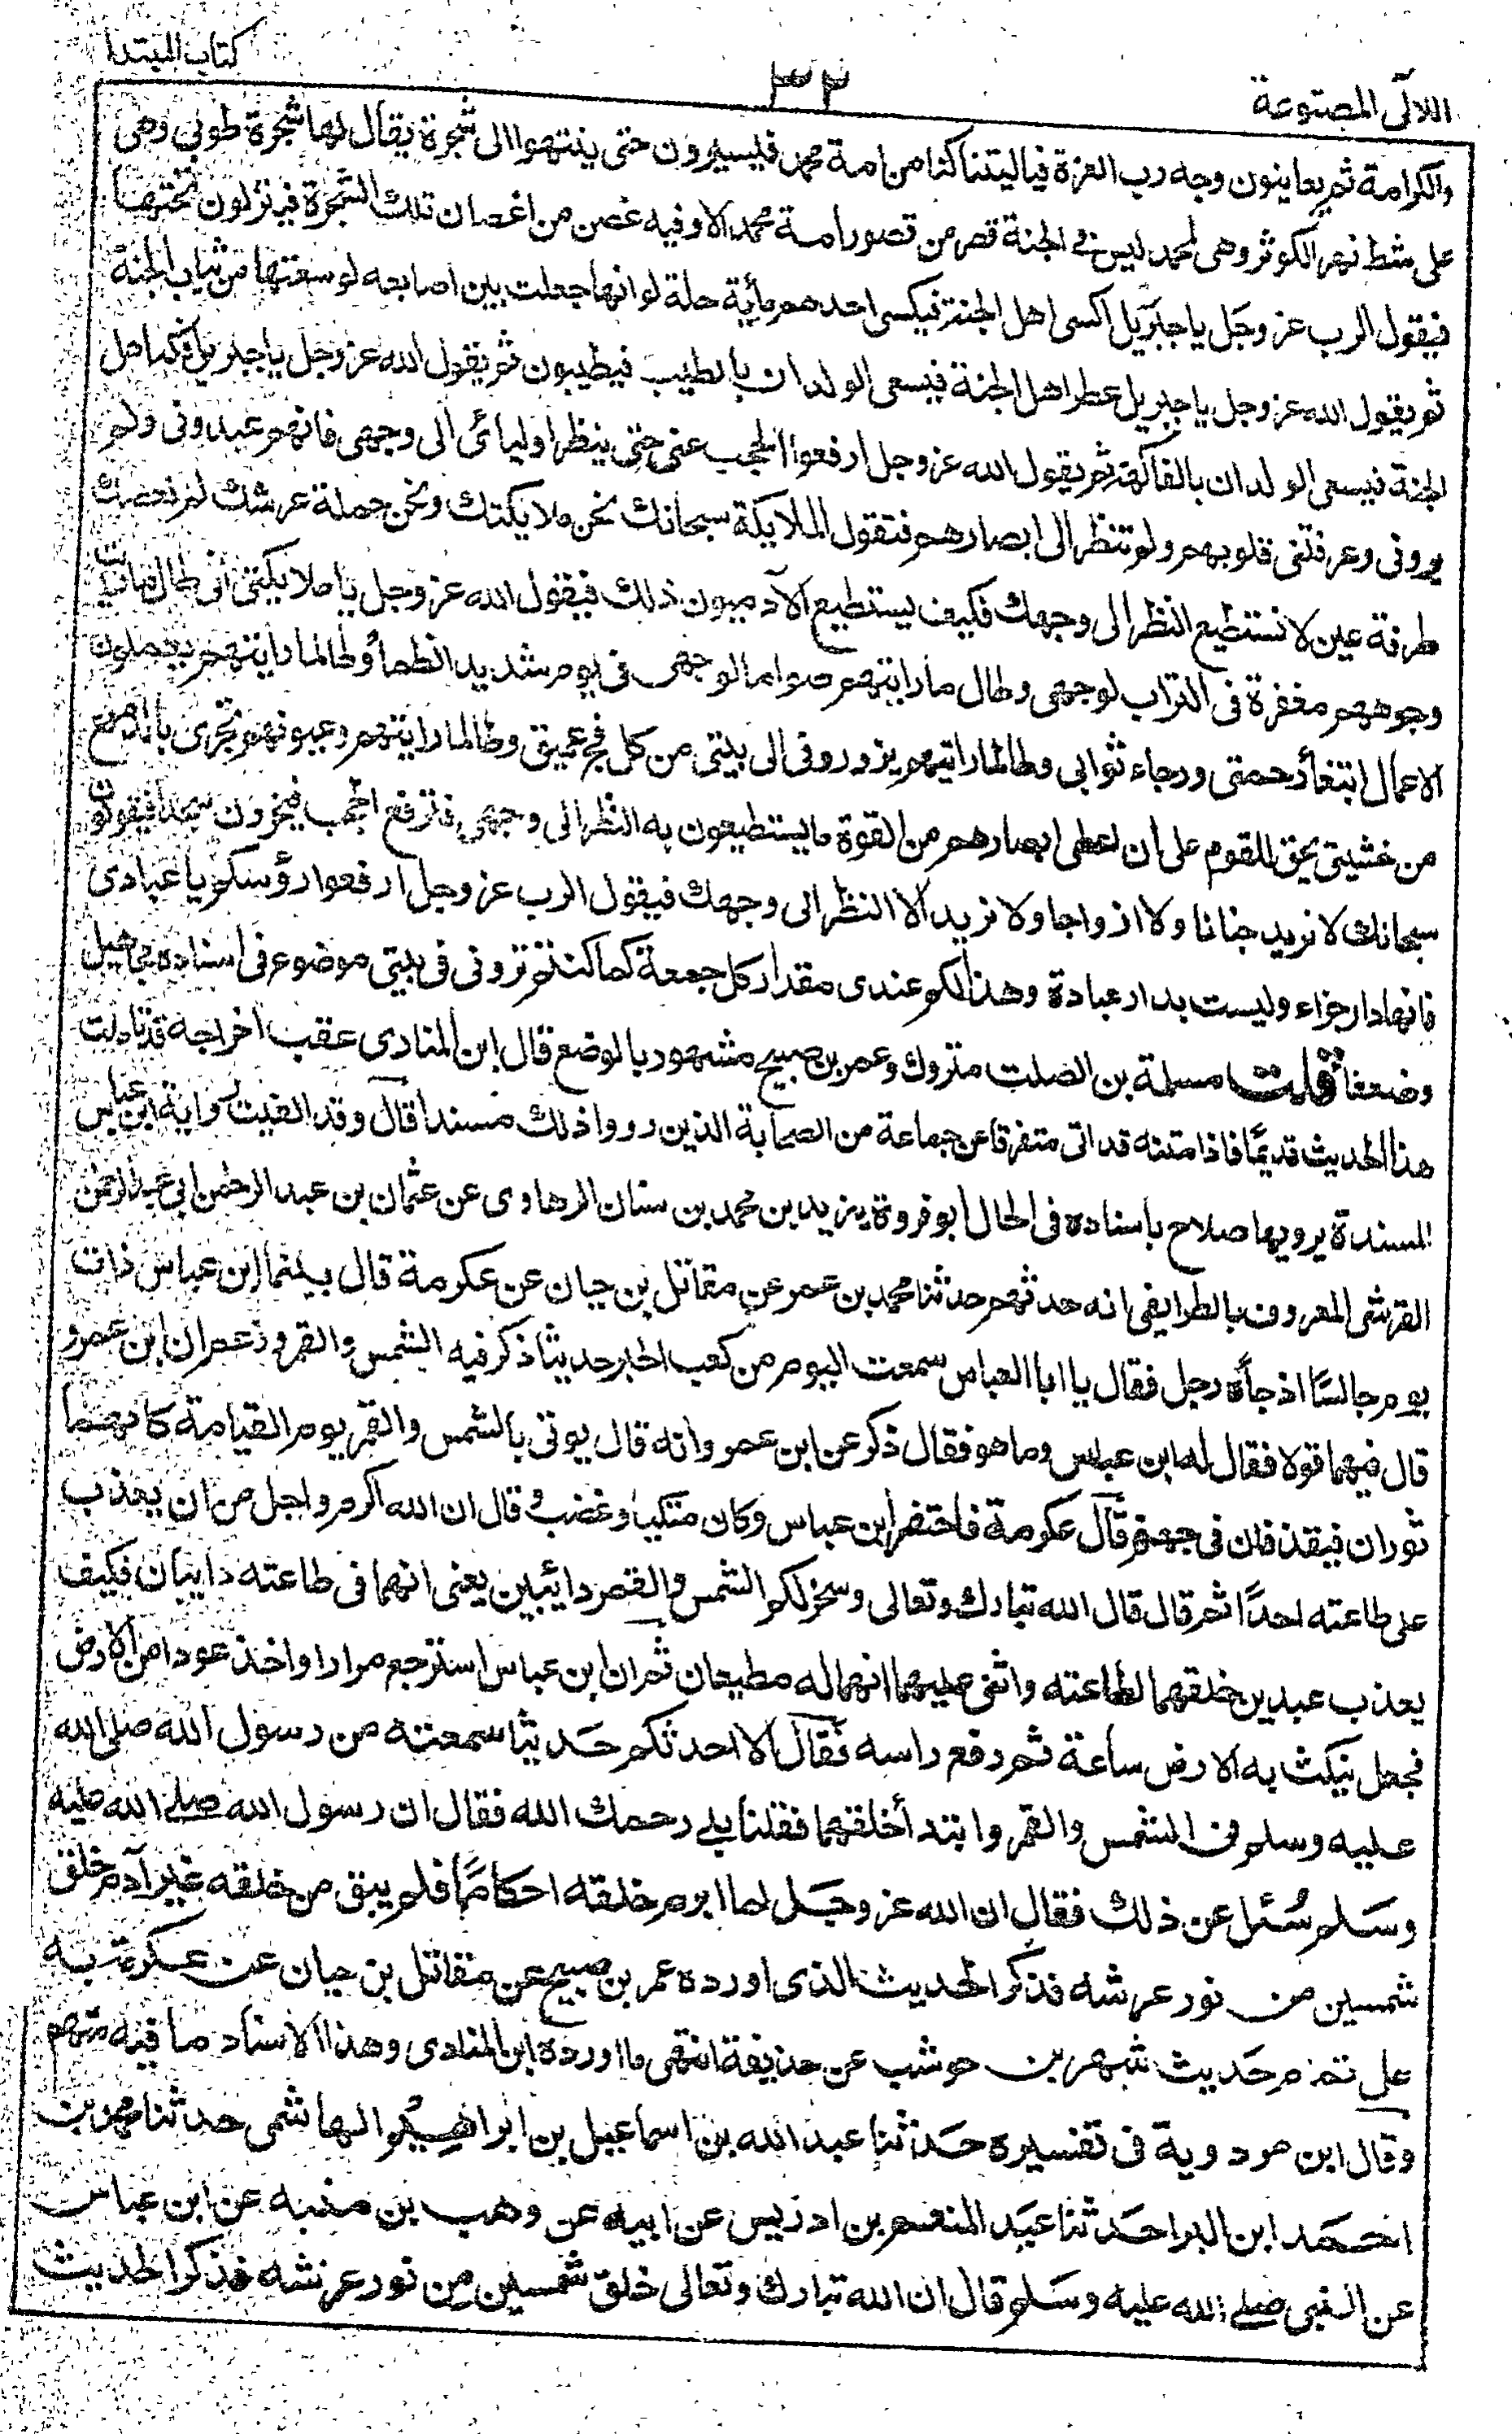 اللآلى المصنوعة
٣٢
كتاب المبتدا
والكرامة ثم يعاينون وجه رب العزة فياليتنا كنا من امة محمد فيسيرون حتى ينتهوا الى شجرة يقال لها شجرة طوبى وهى
على شط نهر الكوثر وهى لمحمد ليس فى الجنة قصر من قصور امة محمد الا وفيه غصن من اغصان تلك الشجرة فينزلون تحتها
فيقول الرب عز وجل يا جبريل اكسى اهل الجنة فيكسى احدهم مأية حلة لو انها جعلت بين اصابعه لوسعتها من ثياب الجنة
ثم يقول الله عز وجل يا جبريل عطر اهل الجنة فيسعى الولدان بالطيب فيطيبون ثم يقول الله عز وجل يا جبريل فكه اهل
الجنة فيسعى الولدان بالفاكهة ثم يقول الله عز وجل ارفعوا الحجب عنى حتى ينظر اوليائى الى وجهى فانهم عبدونى ولم
يرونى وعرفتنى قلوبهم ولم تنظر الى ابصارهم فتقول الملايكة سبحانك نحن ملايكتك ونحن حملة عرشك لم نعصك
طرفة عين لا نستطيع النظر الى وجهك فكيف يستطيع الآدميون ذلك فيقول الله عز وجل يا ملايكتى انى طال ما رايت
وجوههم مغفرة فى التراب لوجهى وطال ما رايتهم صواما لوجهى فى يوم شديد الظمأ ولطالما رايتهم يعملون
الاعمال ابتغأ رحمتى ورجاء ثوابى وطالما راتيهم يزورونى الى بيتى من كل فج عميق وطالما رايتهم وعيونهم تجرى بالدموع
من خشيتى يحق للقوم على ان اعطى ابصارهم من القوة ما يستطيعون به النظر الى وجهى فترفع الحجب فيخرون سجدا فيقولون
سبحانك لا نريد جنانا ولا ازواجا ولا نريد الا النظر الى وجهك فيقول الرب عز وجل ارفعوا رؤسكم يا عبادى
فانها دار جزاء وليست بدار عبادة وهذا لكم عندى مقدار كل جمعة كما كنتم تزورنى فى بيتى موضوع فى اسناده مجاهيل
وضعفا قلت مسلمة بن الصلت متروك وعمر بن صبيح مشهور بالوضع قال ابن المنادى عقب اخراجه قد تاملت
هذا الحديث قديما فاذا متنه قد اتى متفرقا عن جماعة من الصحابة الذين رووا ذلك مسندا قال وقد الفيت رواية ابن عباس
المسندة يرويها صلاح باسناده فى الحال ابو فروة يزيد بن محمد بن سنان الرهاوى عن عثمان بن عبد الرحمن ابى عبد الرحمن
القرشى المعروف بالطرايفى انه حدثهم حدثنا محمد بن عمر عن مقاتل بن حيان عن عكرمة قال بينما ابن عباس ذات
يوم جالسا اذ جأه رجل فقال يا ابا العباس سمعت اليوم من كعب الحبر حديثا ذكر فيه الشمس والقمر وزعم ان ابن عمرو
قال فيهما قولا فقال له ابن عباس وما هو فقال ذكر عن ابن عمرو انه قال يوتى بالشمس والقمر يوم القيامة كانهما
ثوران فيقذفان فى جهنم قال عكرمة فاحتفز ابن عباس وكان متكيا وغضب وقال ان الله اكرم واجل من ان يعذب
على طاعته احدا ثم قال قال الله تبارك وتعالى وسخر لكم الشمس والقمر دائبين يعنى انهما فى طاعته دايبان فكيف
يعذب عبدين خلقهما لطاعته واثنى عليهما انهما له مطيعان ثم ان ابن عباس استرجع مرارا واخذ عودا من الارض
فجعل ينكث به الارض ساعة ثم رفع راسه فقال الا احدثكم حديثا سمعته من رسول الله صلى الله
عليه وسلم فى الشمس والقمر وابتدأ خلقهما فقلنا بلى رحمك الله فقال ان رسول الله صلى الله عليه
وسلم سُئل عن ذلك فقال ان الله عز وجل لما ابرم خلقه احكاما فلم يبق من خلقه غير آدم خلق
شمسين من نور عرشه فذكر الحديث الذى اورده عمر بن صبيح عن مقاتل بن حيان عن عكرمة به
على حديث شهر بن حوشب عن حذيفة انتهى ما اورده ابن المنادى وهذا الاسناد ما فيه متهم
وقال ابن مردوية فى تفسيره حدثنا عبد الله بن اسماعيل بن ابراهيم الهاشمى حدثنا محمد بن
احمد ابن البرا حدثنا عبد المنعم بن ادريس عن ابيه عن وهب بن منبه عن ابن عباس
عن النبى صلى الله عليه وسلم قال ان الله تبارك وتعالى خلق شمسين من نور عرشه فذكر الحديث